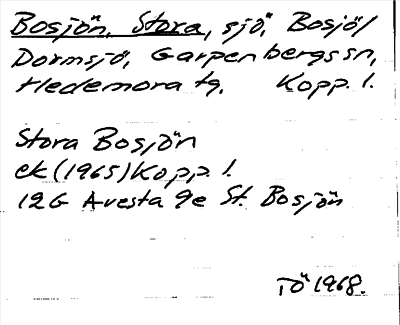 Bosjön, Stora, sjö, Bosjö/
Dormsjö, Garpenbergs sn,
Hedemora tg. Kopp. l.
Stora Bosjön
ek (1965) Kopp. l.
12G Avesta 9e St. Bosjön
TÖ 1968.